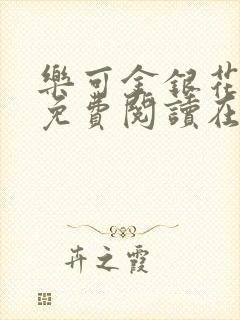 樂可金銀花
免費閱讀在
卉之霞